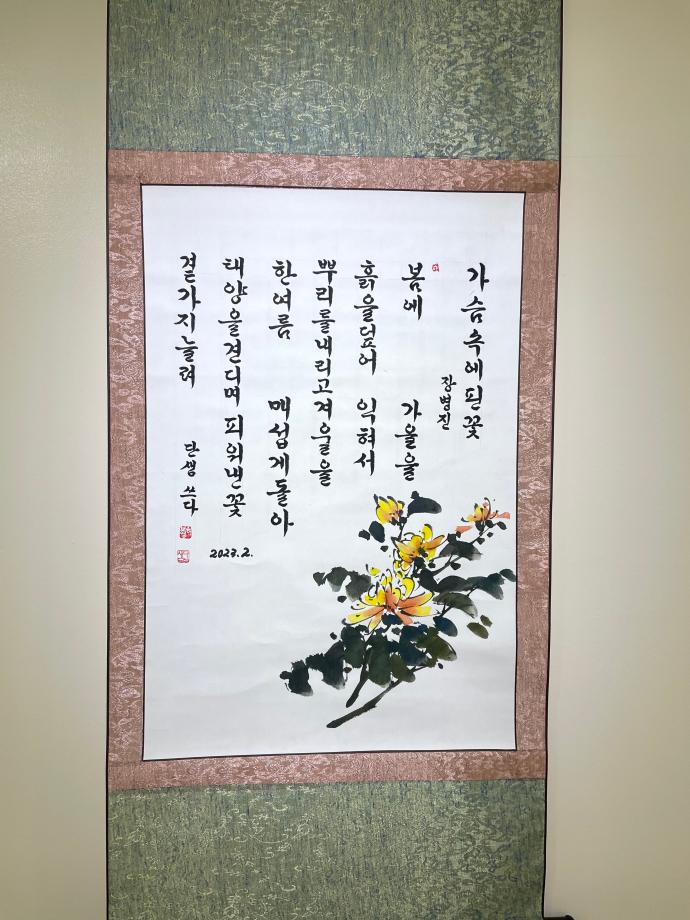 가슴속에핀꽃
장병진
봄에 가을을
흙을덮어 익혀서
뿌리를내리고겨울을
한여름 매섭게돌아
태양을견디며 피워낸꽃
곁가지늘려
단샘 쓰다
2023.2.